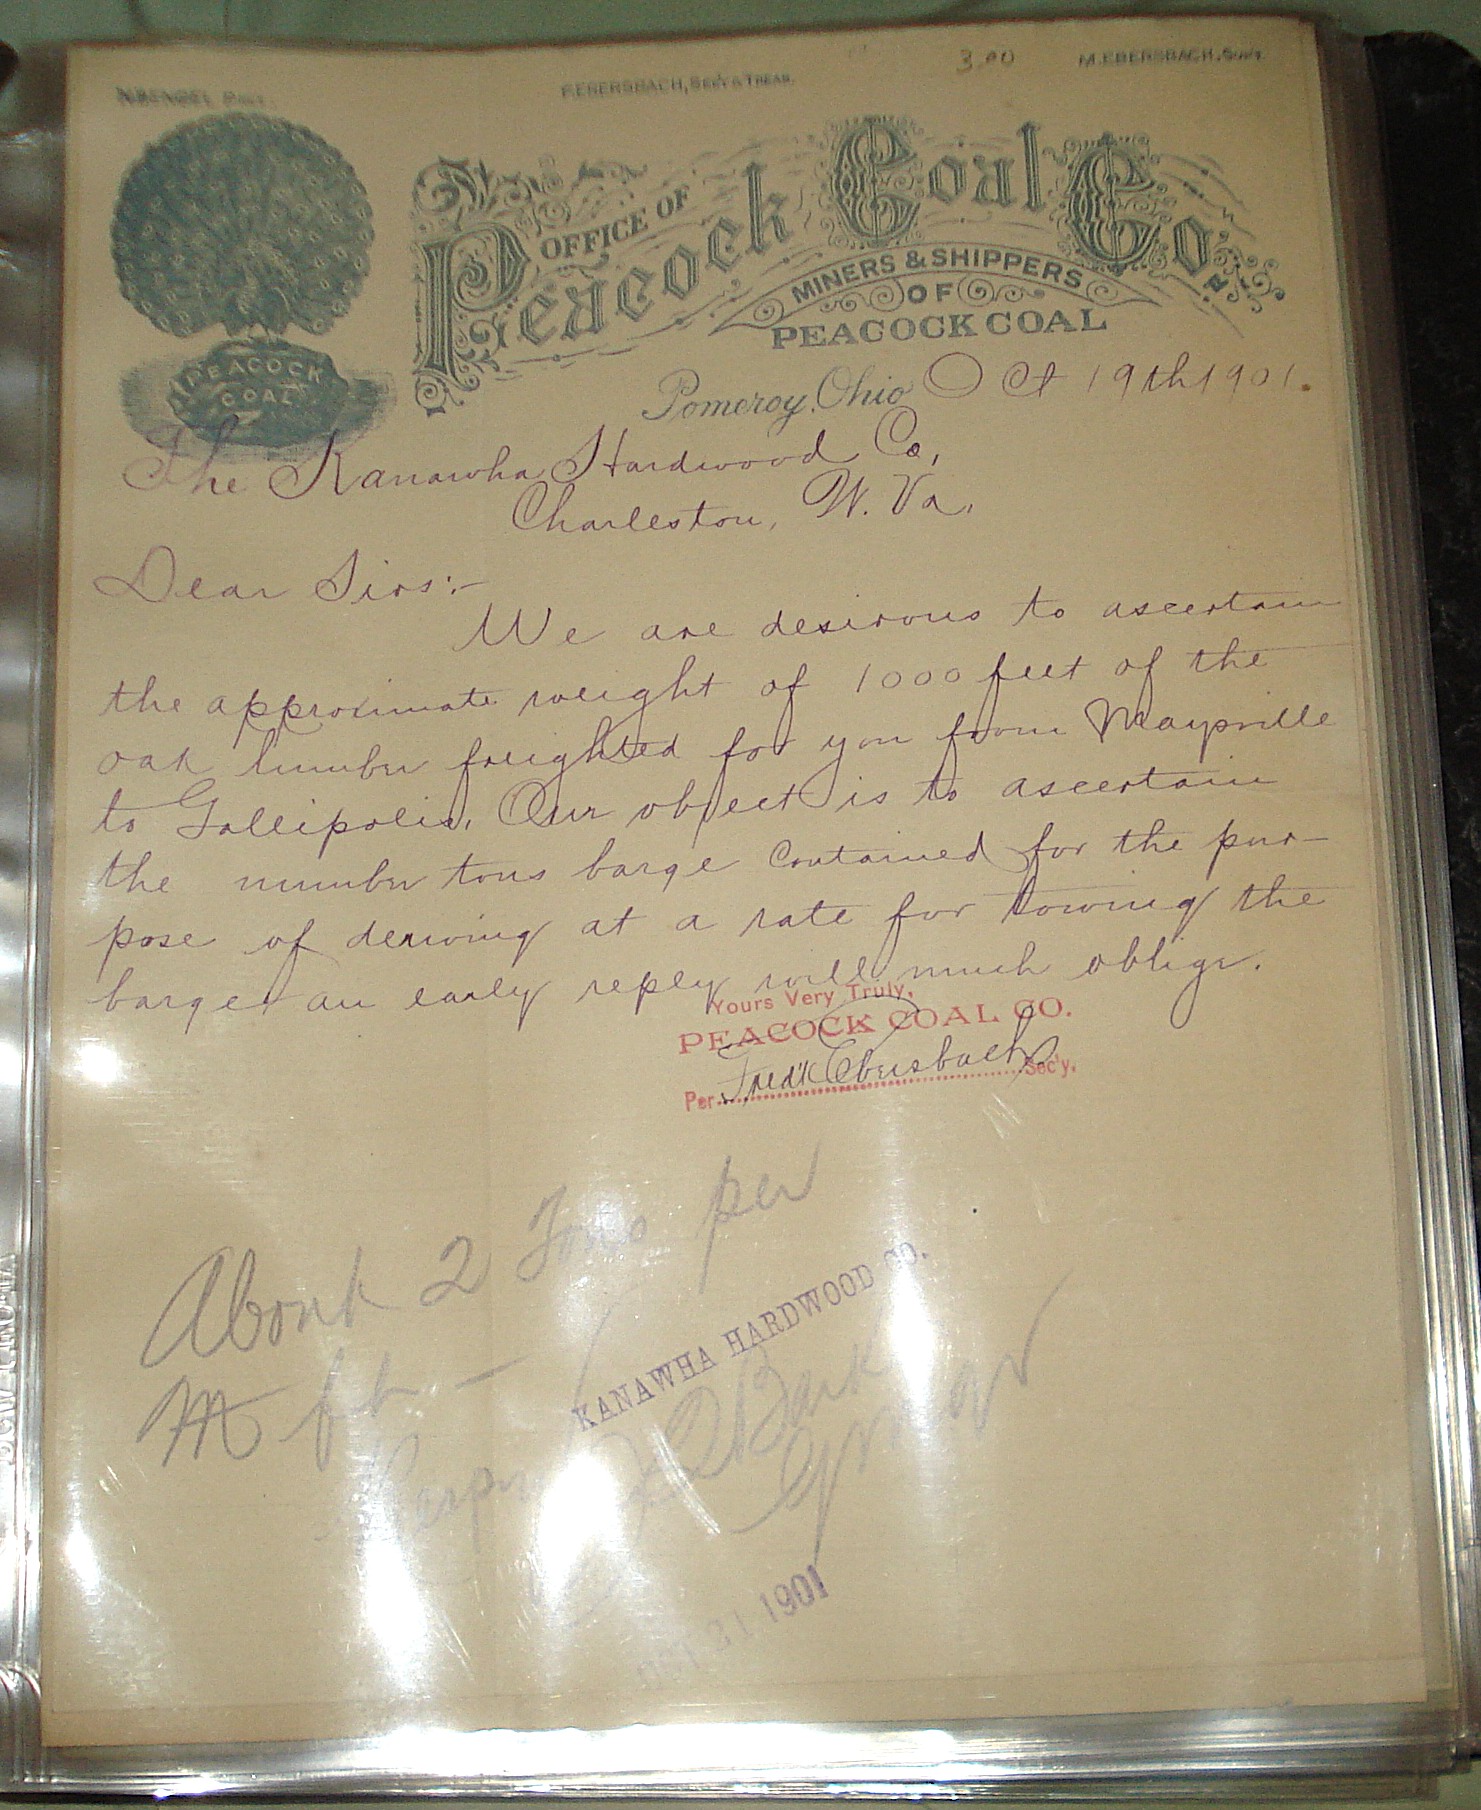 F. EBERSBACH, SEC'Y & TREAS.
3.00
M. EBERSBACH, SUPT.
OFFICE OF
Peacock Coal Co.
MINERS & SHIPPERS
OF
PEACOCK COAL
PEACOCK
COAL
Pomeroy, Ohio Oct 19th 1901.
The Kanawha Hardwood Co,
Charleston, W. Va,
Dear Sirs:-
We are desirous to ascertain
the approximate weight of 1000 feet of the
oak lumber freighted for you from Maysville
to Gallipolis. Our object is to ascertain
the number tons barge contained for the pur-
pose of deriving at a rate for towing the
barge. an early reply will much oblige.
Yours Very Truly,
PEACOCK COAL CO.
Per Fred'k Ebersbach Sec'y.
About 2 Tons per
M ft -
KANAWHA HARDWOOD CO.
OCT 21 1901